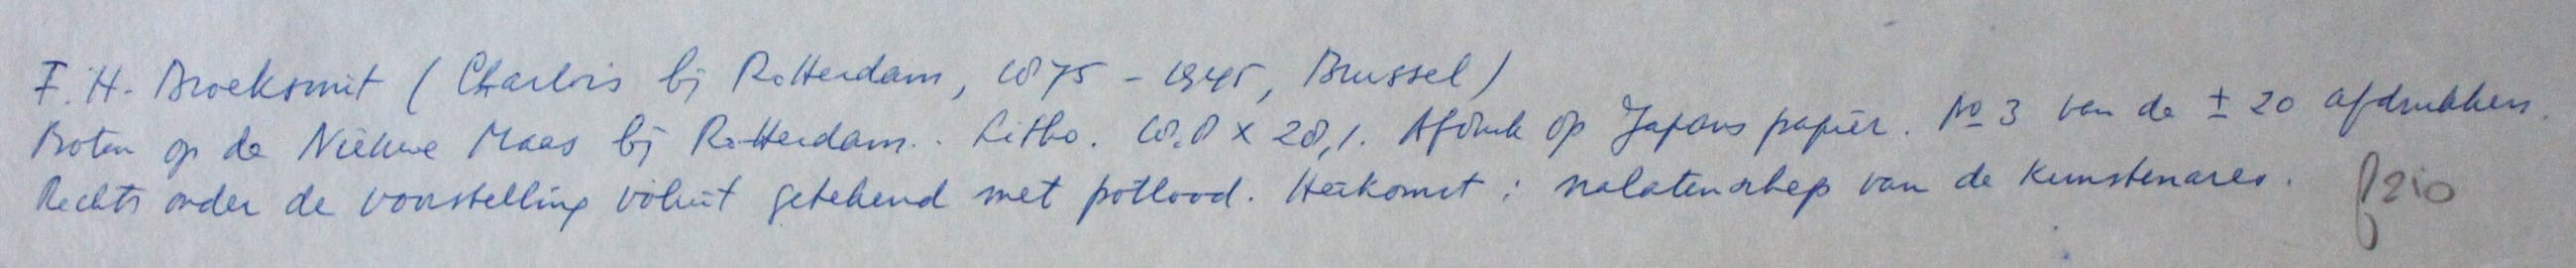 F. H. Broeksmit (Charlois bij Rotterdam, 1875 - 1945, Brussel)
Boten op de Nieuwe Maas bij Rotterdam. Litho. 18.8 x 28,1. Afdruk op Japans papier. No 3 van de ± 20 afdrukken.
Rechts onder de voorstelling voluit getekend met potlood. Herkomst: nalatenschap van de kunstenares. f 210